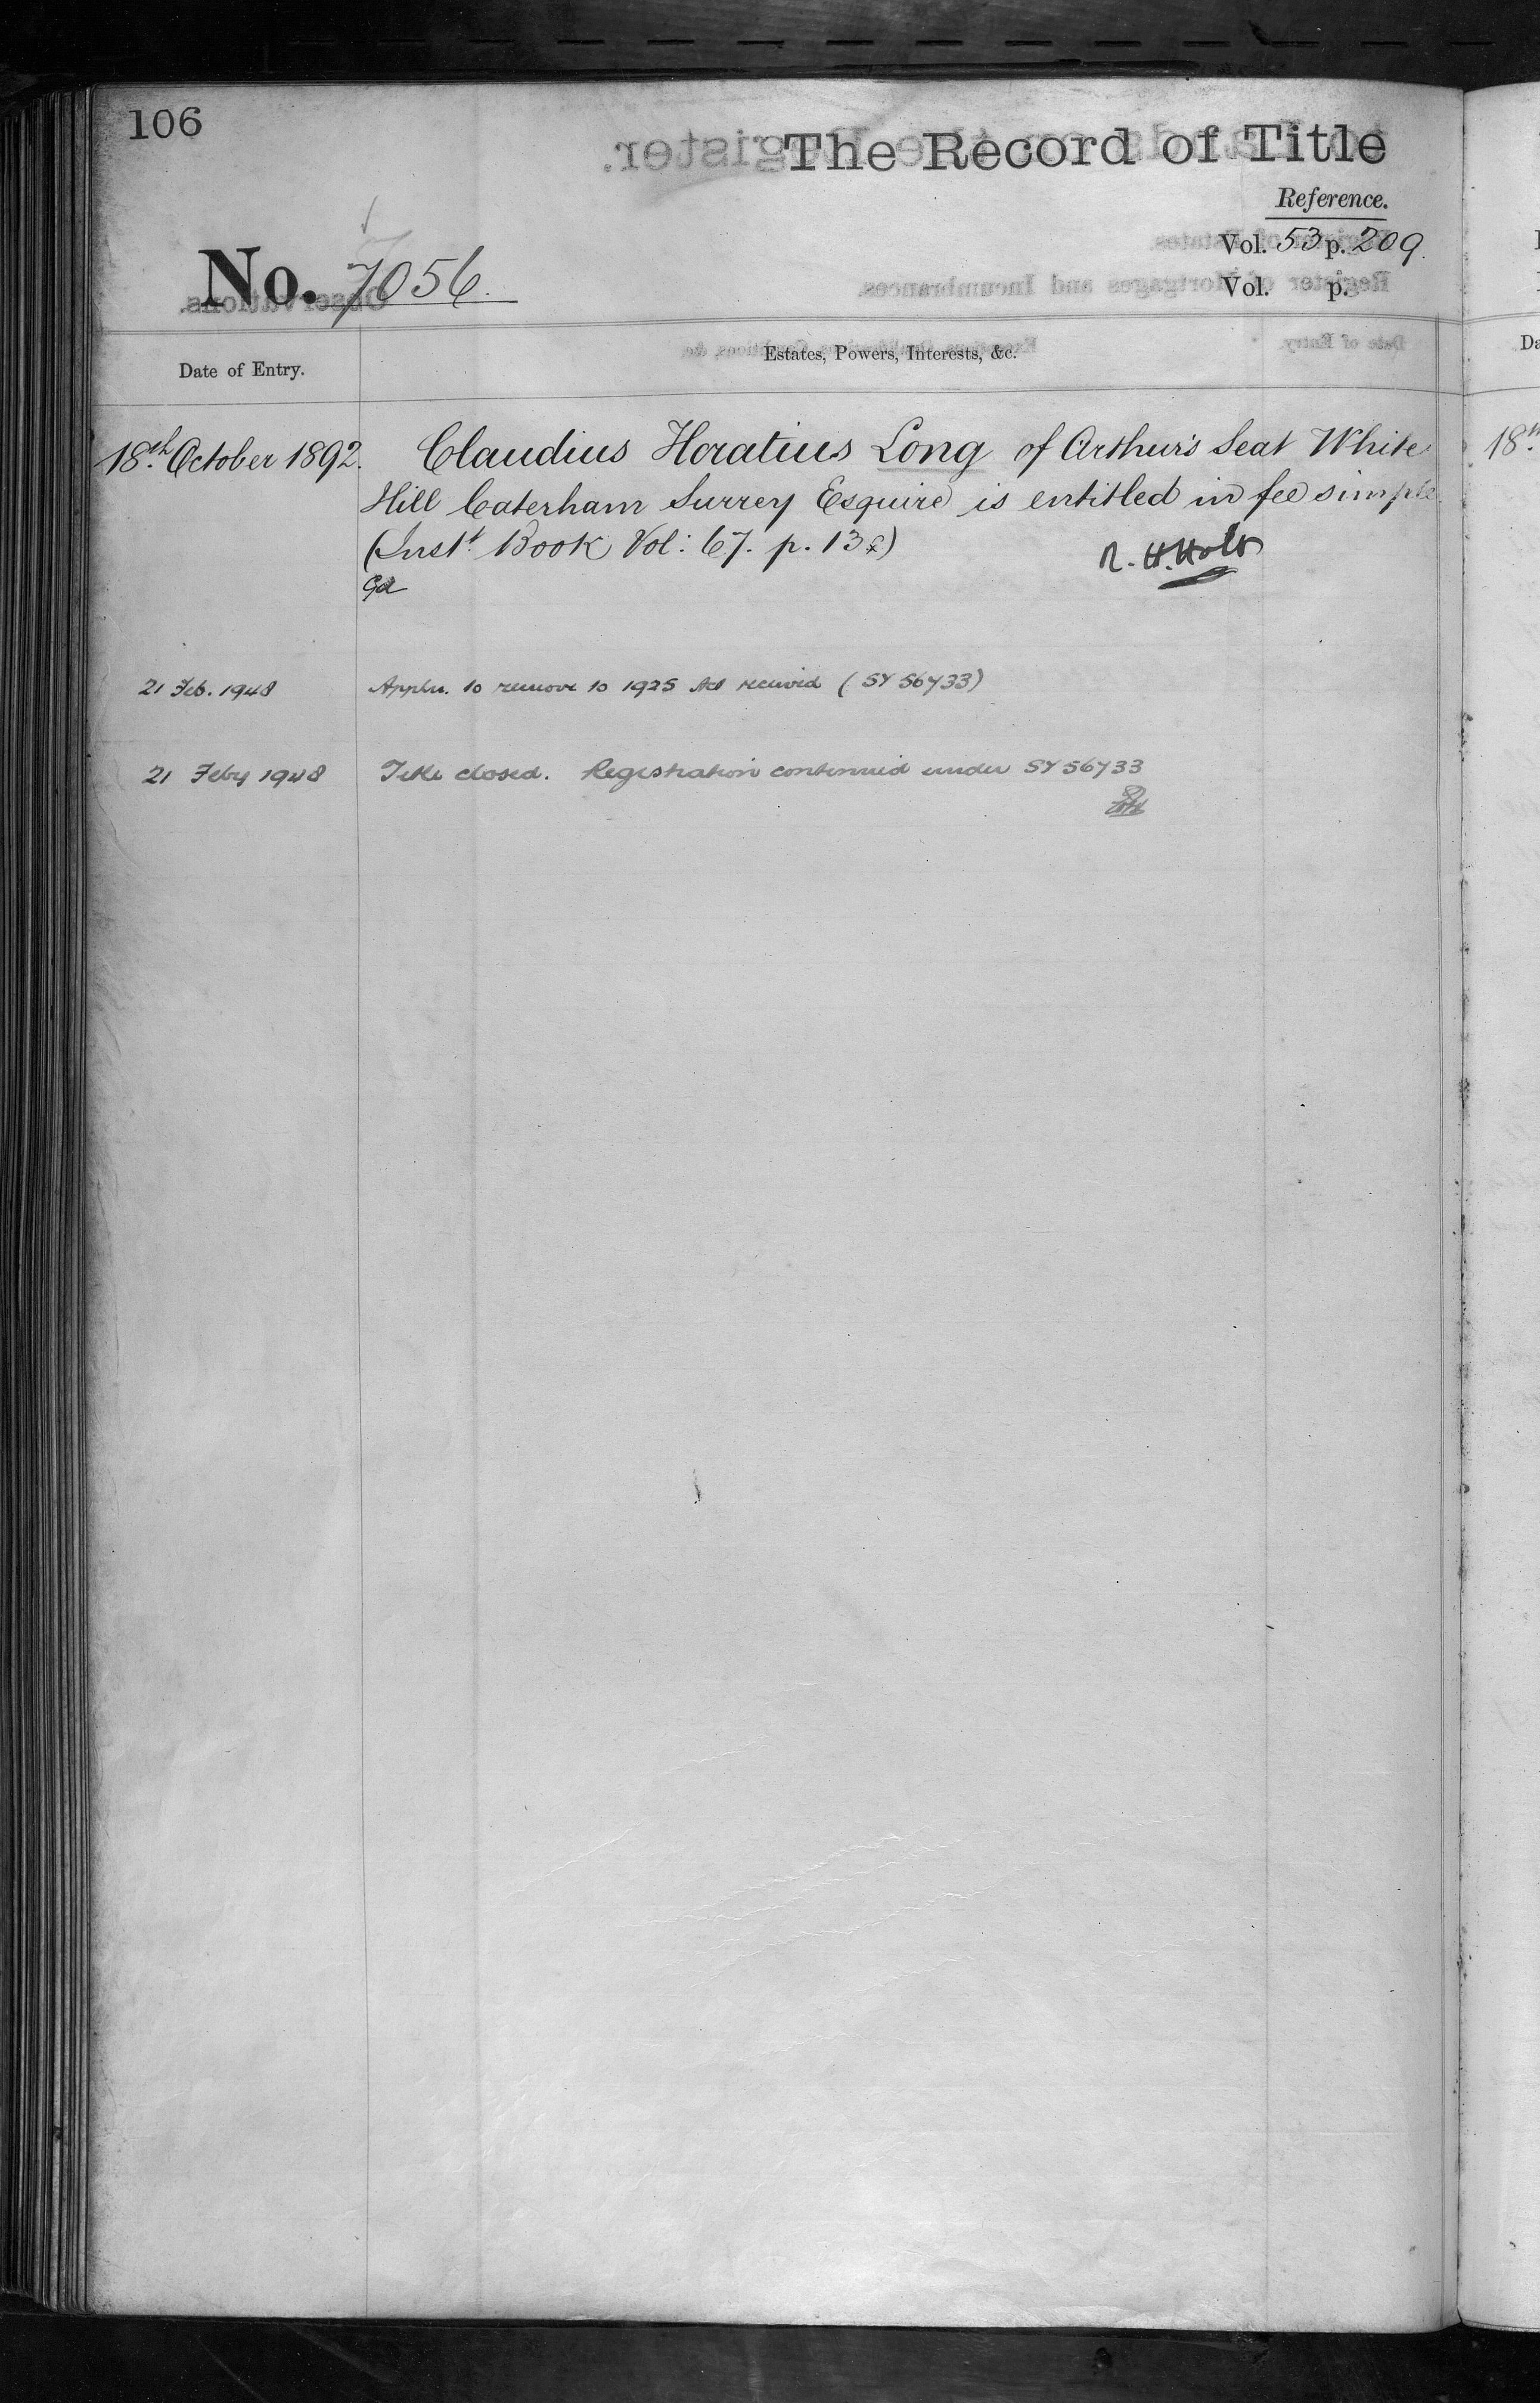 106
The Record of Title
Reference.
Vol. 53 p. 209.
No. 7056.
Vol. p.
Date of Entry.
Estates, Powers, Interests, &c.
18th October 1892. Claudius Horatius Long of Arthur's Seat White
Hill Caterham Surrey Esquire is entitled in fee simple
(Inst. Book Vol: 67. p. 138)
R. H. Holt
21 Feb. 1948 Appln. to remove to 1925 Act received (SY 56733)
21 Feby 1948 Title closed. Registration continued under SY 56733
18th